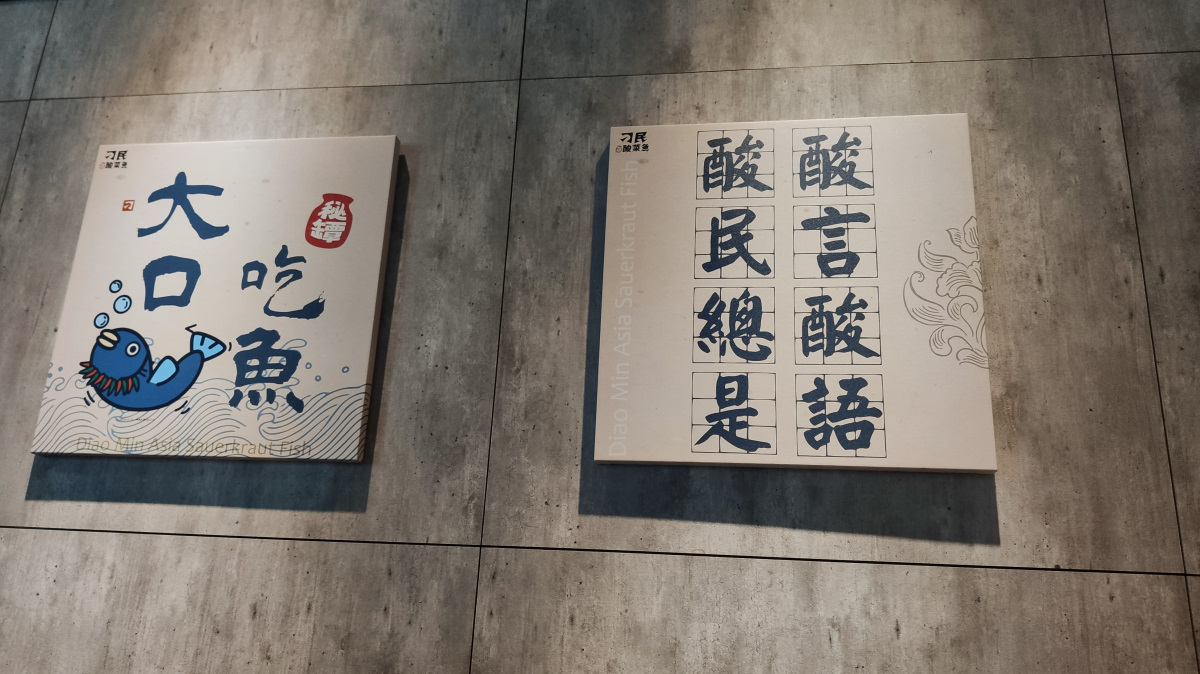 刁民
酸菜鱼
大口
吃魚
秘罈
刁
Diao Min Asia Sauerkraut Fish
刁民
酸菜鱼
Diao Min Asia Sauerkraut Fish
酸民總是
酸言酸語